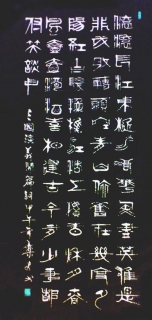 滾滾長江東逝水浪花淘盡英雄是
非成敗轉頭空青山依舊在幾度夕
陽紅白髮漁樵江渚上慣看秋月春
風一壺濁酒喜相逢古今多少事都
付笑談中
三國演義開篇詞甲午年